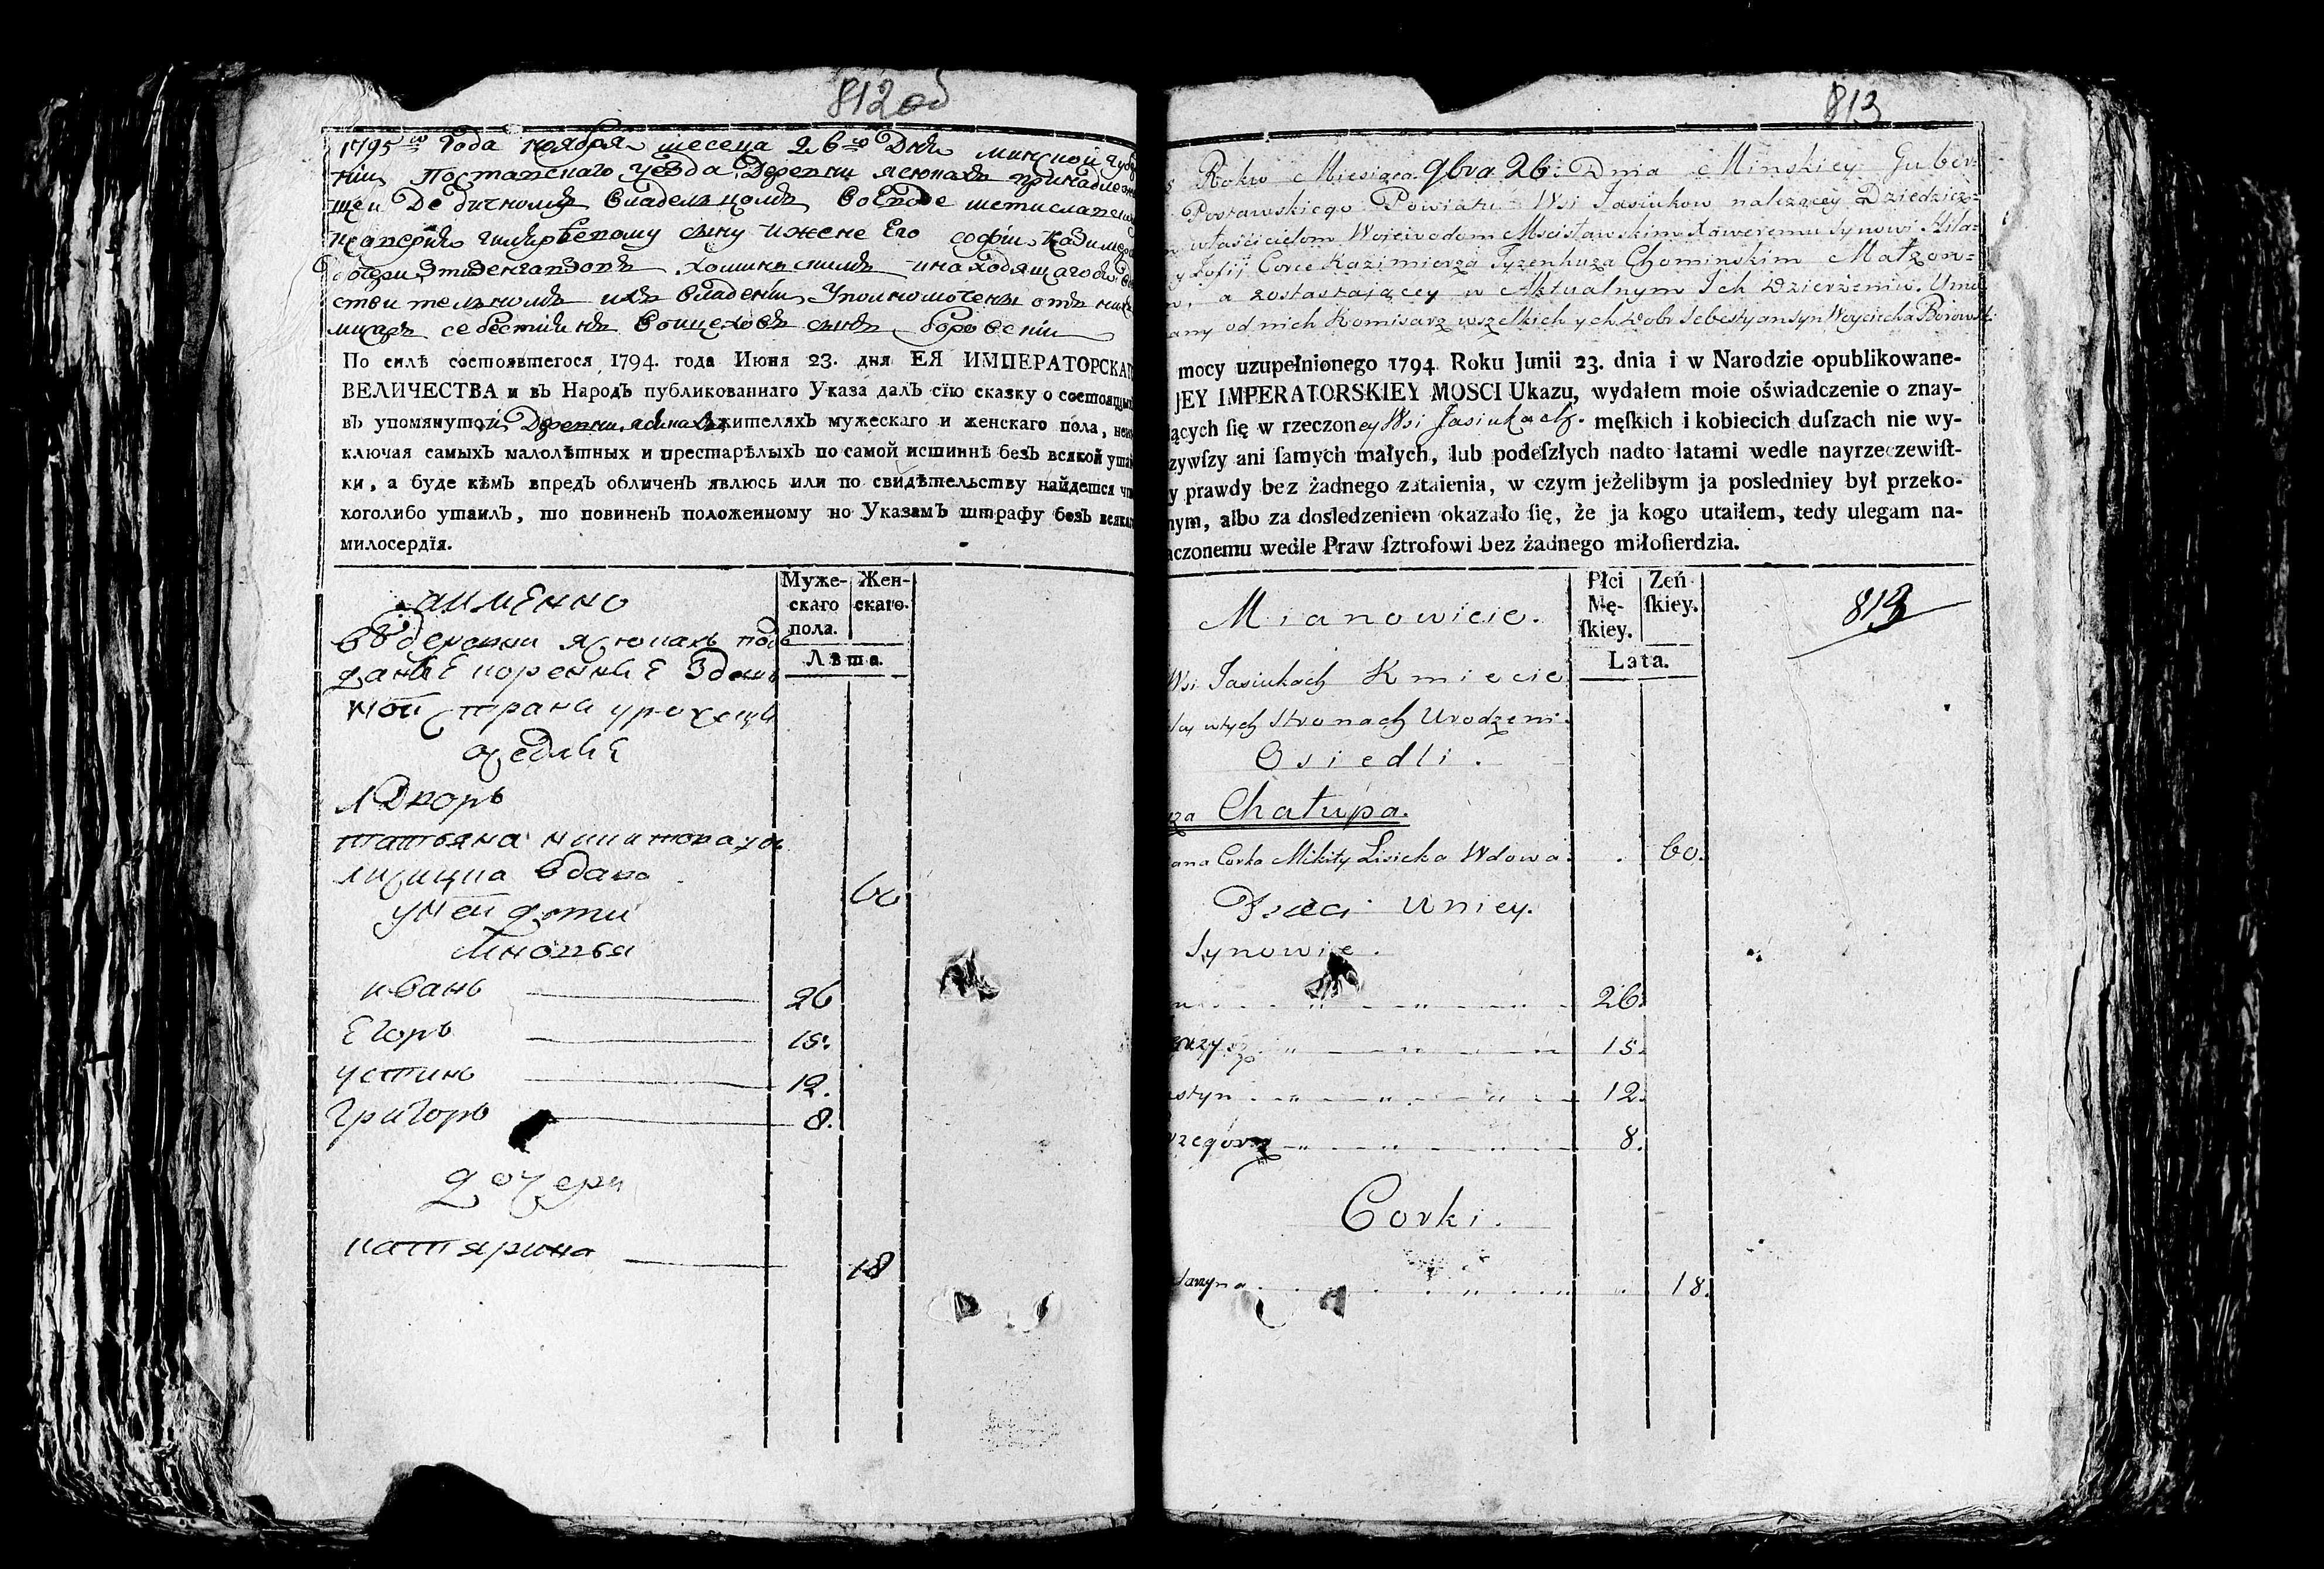 812 об
1795го Года ноября месеца 26го Дня минской губ
нии Поставскаго уезда Деревни ясюках принадлежа
щей Дедичному владельцомъ воеводе мстиславск
ксаверию сыну и жене Его софии казимера
дочери хоминскимъ и находящагося
ствительномъ ихъ владении Уполномочены отъ нихъ
себестиянъ воицеховъ сынъ боровски
По силѣ состоявшегося 1794. года Июня 23. дня ЕЯ ИМПЕРАТОРСКАГ
ВЕЛИЧЕСТВА и въ Народъ публикованнаго Указа далъ сїю сказку о состоящихъ
въ упомянутой Деревни ясюкахъ жителяхъ мужескаго и женскаго пола, неис
ключая самыхъ малолѣтныхъ и престарѣлыхъ по самой истиннѣ безъ всякой утай
ки, а буде кѣмъ впредъ обличенъ явлюсь или по свидѣтельству найдется что
коголибо утаилъ, то повиненъ положенному по Указамъ штрафу безъ всякаго
милосердїя.
Муже-
скаго
пола.
Жен-
скаго.
Лѣта.
аименно
въ деревни ясюкахъ под
даные коренные Здеш
ней страни урожеци
оседлие
1 Дворъ
татьяна никитова дочь
лисицка вдова 60
у ней дети
сыновья
иванъ 26
Егоръ 15.
устинъ 12.
григоръ 8.
дочери
катярина 18
813
Roku Miesiąca 9bra 26. Dnia Minskiey Guber-
Postawskiego Powiatu Wsi Jasiukow nalezącey Dziedzicz-
właścicielom Woiewodom Mscisławskim Xaweremu Synowi Hila-
y Zofij Corce Kazimierza Tyzenhuza Chominskim Małzon=
a zostaiącey w Aktualnym Ich Dzierzeniu. Umo
any od nich Komisarz wszelkich ych Dobr Sebestyan syn Woyciecha Borowski
mocy uzupełnionego 1794 Roku Junii 23. dnia i w Narodzie opublikowane-
JEY IMPERATORSKIEY MOSCI Ukazu, wydałem moie oświadczenie o znay-
ących ſię w rzeczoney Wsi Jasiukach. męſkich i kobiecich duſzach nie wy-
zywſzy ani ſamych małych, lub podeſzłych nadto latami wedle nayrzeczewiſt-
y prawdy bez żadnego zataienia, w czym jeżelibym ja posledniey był przeko-
nym, albo za dosledzeniem okazało ſię, że ja kogo utaiłem, tedy ulegam na-
aczonemu wedle Praw ſztrofowi bez żadnego miłoſierdzia.
Płci
Mę-
ſkiey.
Zeń
ſkiey.
Lata.
813
Mianowicie.
Wsi Jasiukach Kmiecie
wtych Stronach Urodzeni
Osiedli.
za Chałupa.
ana Corka Mikity Lisicka Wdowa 60.
Dzieci Uniey.
Synowie.
n 26.
rzy 15.
styn 12.
rzegorz 8.
Corki.
tarzyna 18.